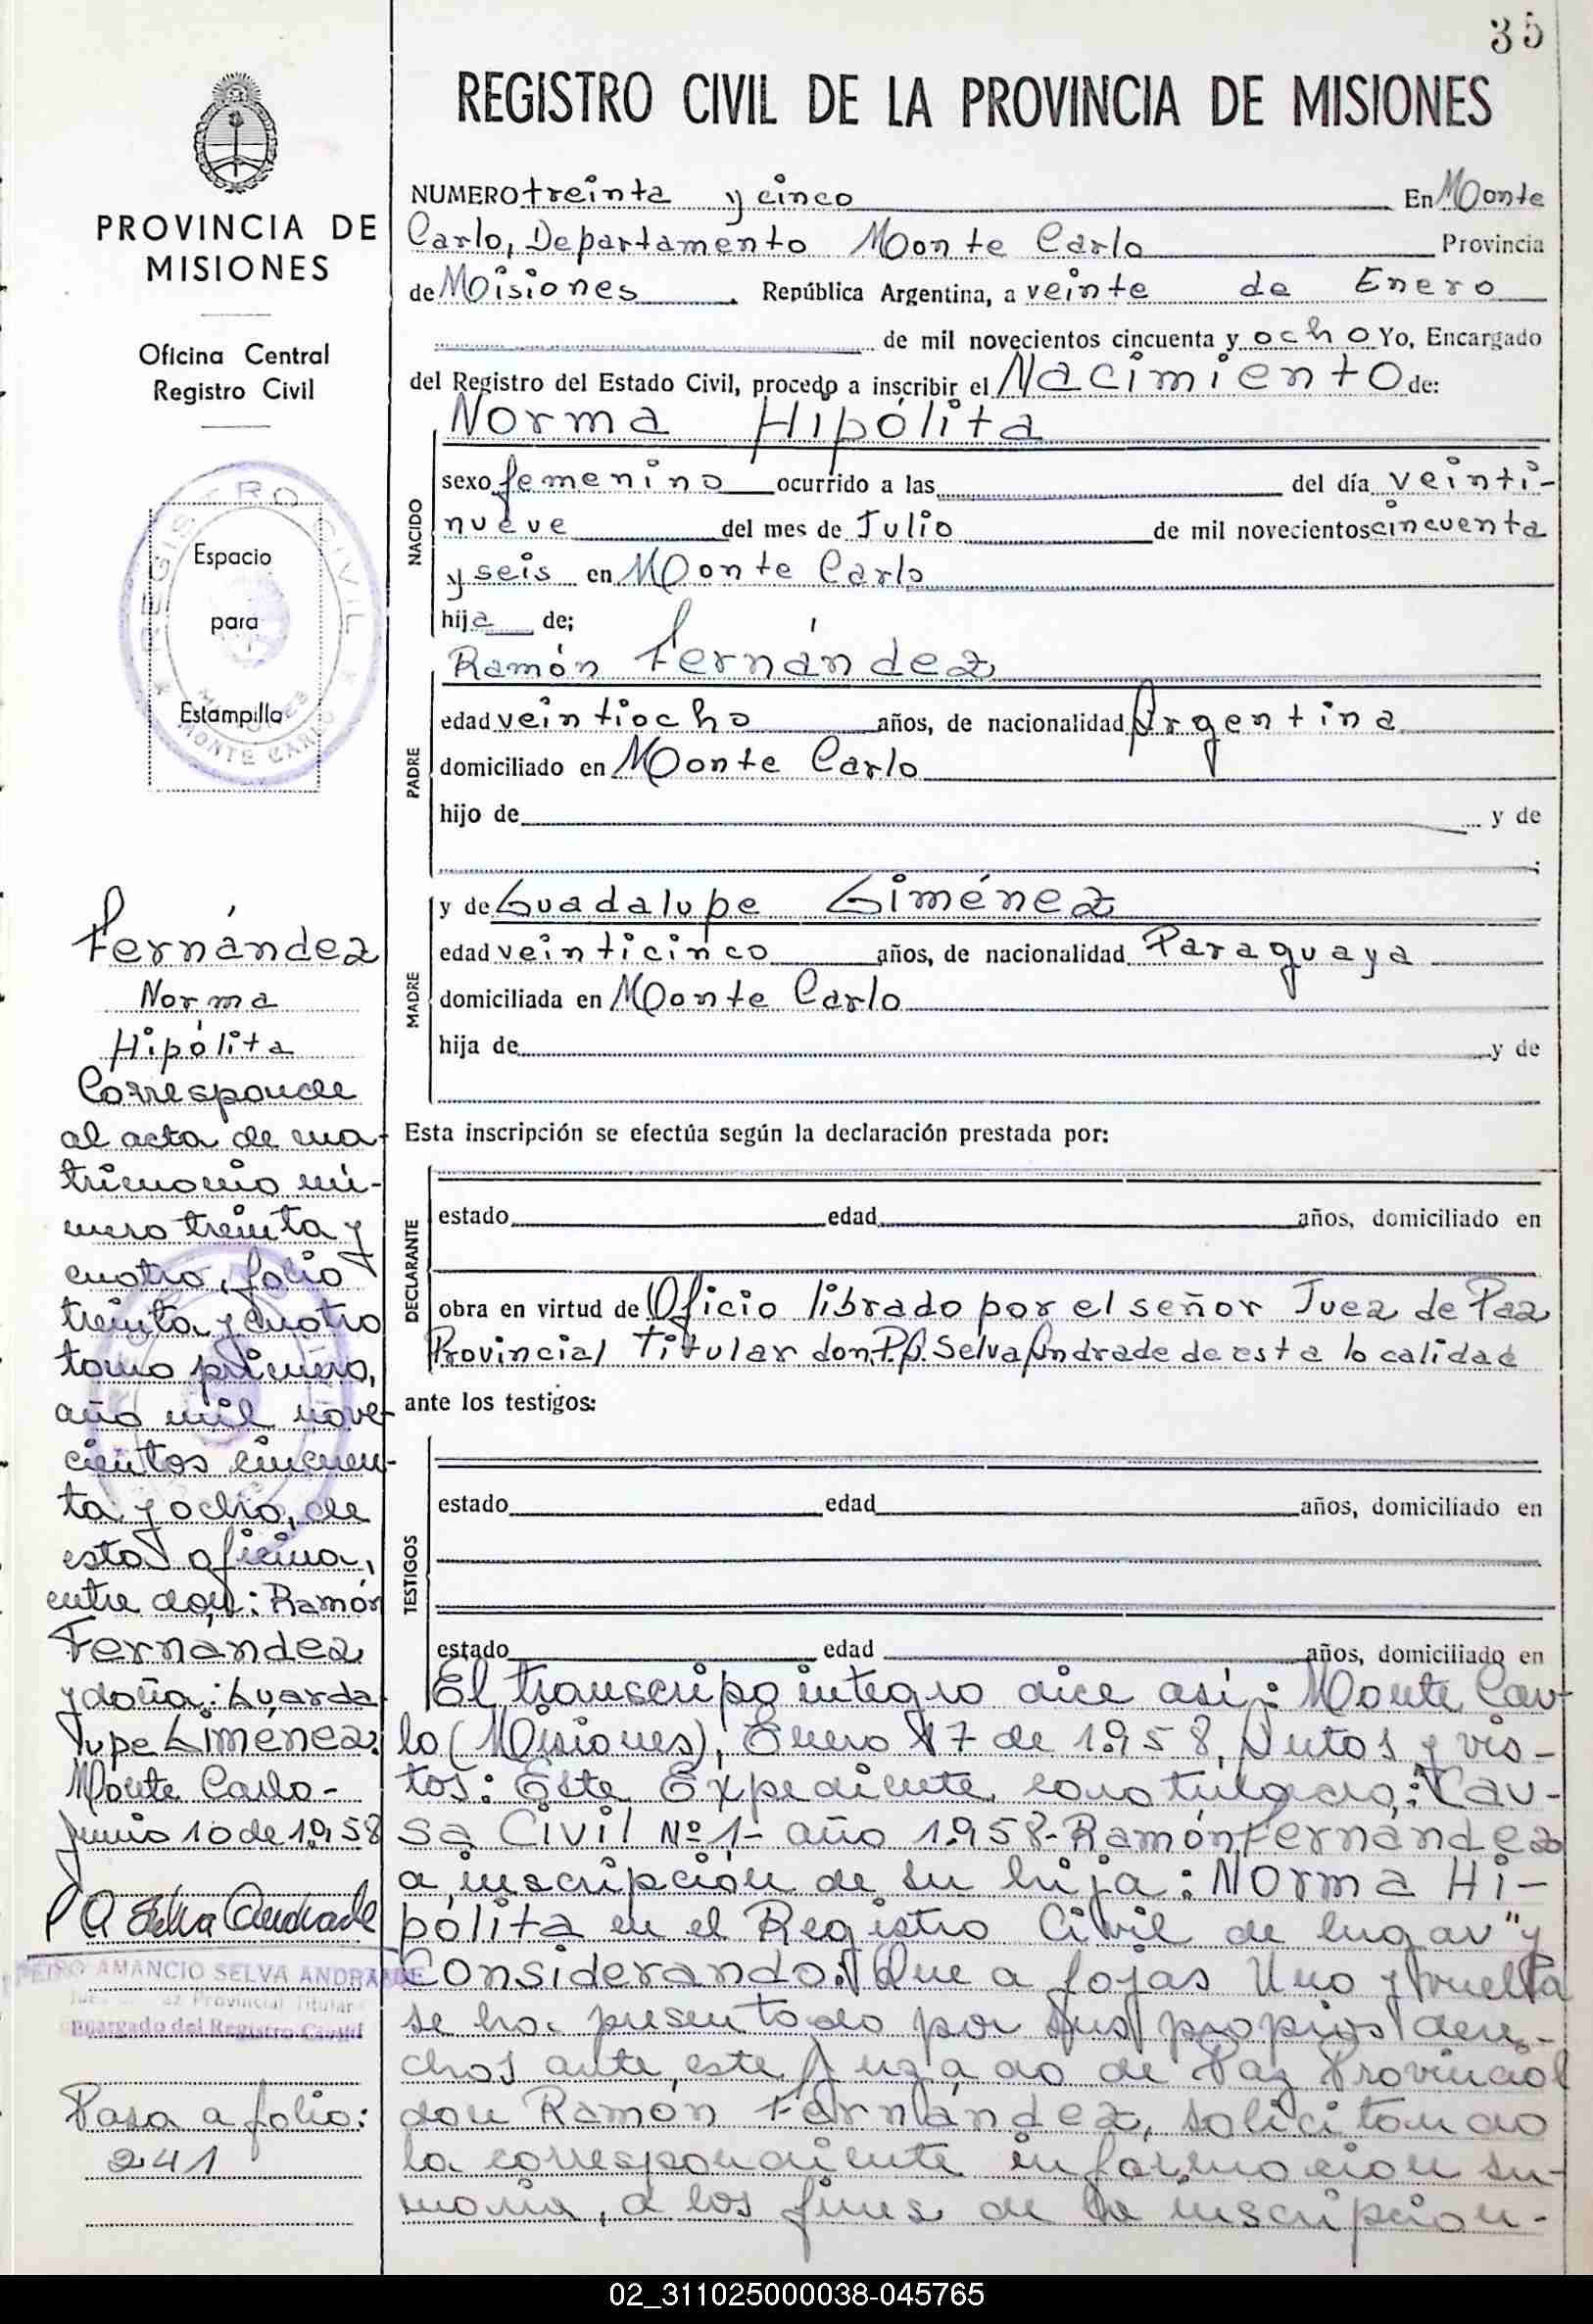 35
REGISTRO CIVIL DE LA PROVINCIA DE MISIONES
PROVINCIA DE
MISIONES
Oficina Central
Registro Civil
REGISTRO CIVIL
Espacio
para
Estampilla
MISIONES
MONTE CARLO
NUMERO treinta y cinco En Monte
Carlo, Departamento Monte Carlo Provincia
de Misiones República Argentina, a veinte de Enero
de mil novecientos cincuenta y ocho Yo, Encargado
del Registro del Estado Civil, procedo a inscribir el Nacimiento de:
Norma Hipólita
NACIDO
sexo femenino ocurrido a las del día veinti-
nueve del mes de Julio de mil novecientos cincuenta
y seis en Monte Carlo
hija de;
Ramón Fernández
PADRE
edad veintiocho años, de nacionalidad Argentina
domiciliado en Monte Carlo
hijo de y de
;
y de Guadalupe Giménez
MADRE
edad veinticinco años, de nacionalidad Paraguaya
domiciliada en Monte Carlo
hija de y de
Esta inscripción se efectúa según la declaración prestada por:
DECLARANTE
estado edad años, domiciliado en
obra en virtud de Oficio librado por el señor Juez de Paz
Provincial Titular don P.A. Selva Andrade de esta localidad
ante los testigos:
TESTIGOS
estado edad años, domiciliado en
estado edad años, domiciliado en
El transcripo integro dice asi: Monte Car-
lo (Misiones), Enero 17 de 1.958, Autos y vis-
tos: Este Expediente caratulado: "Cau-
sa Civil Nº 1- año 1.958- Ramón Fernández
a inscripción de su hija: Norma Hi-
pólita en el Registro Civil de lugar" y
Considerando: Que a fojas Uno y vuelta
se ha presentado por sus propios dere-
chos ante este Juzgado de Paz Provincial
don Ramón Fernández, solicitando
la correspondiente información su-
maria, a los fines de la inscripción-
Fernández
Norma
Hipólita
Corresponde
al acta de ma-
trimonio nú-
mero treinta y
cuatro, folio
treinta y cuatro
tomo primero,
año mil nove-
cientos cincuen-
ta y ocho, de
esta oficina,
entre don: Ramón
Fernández
y doña: Guada-
lupe Giménez.
Monte Carlo-
Junio 10 de 1.958
P A Selva Andrade
PEDRO AMANCIO SELVA ANDRADE
Juez de Paz Provincial Titular
Encargado del Registro Civil
Pasa a folio:
241
02_311025000038-045765